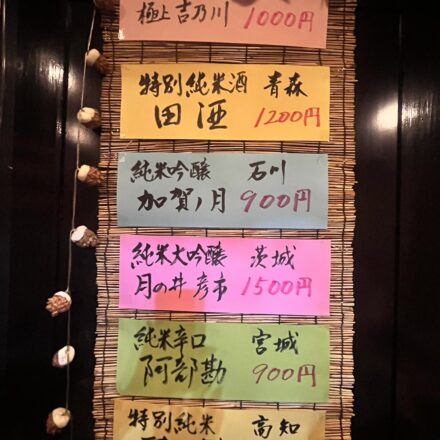 極上吉乃川 1000円
特別純米酒 青森
田酒 1200円
純米吟醸 石川
加賀ノ月 900円
純米大吟醸 茨城
月の井 彦市 1500円
純米辛口 宮城
阿部勘 900円
特別純米 高知